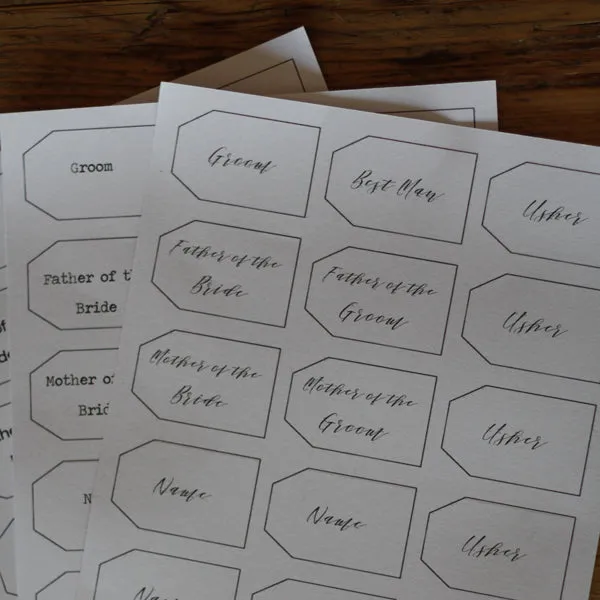 Groom
Best Man
Usher
Father of the
Bride
Father of the
Groom
Usher
Mother of the
Bride
Mother of the
Groom
Usher
Name
Name
Usher
Name
Groom
Father of th
Bride
Mother of
Brid
N